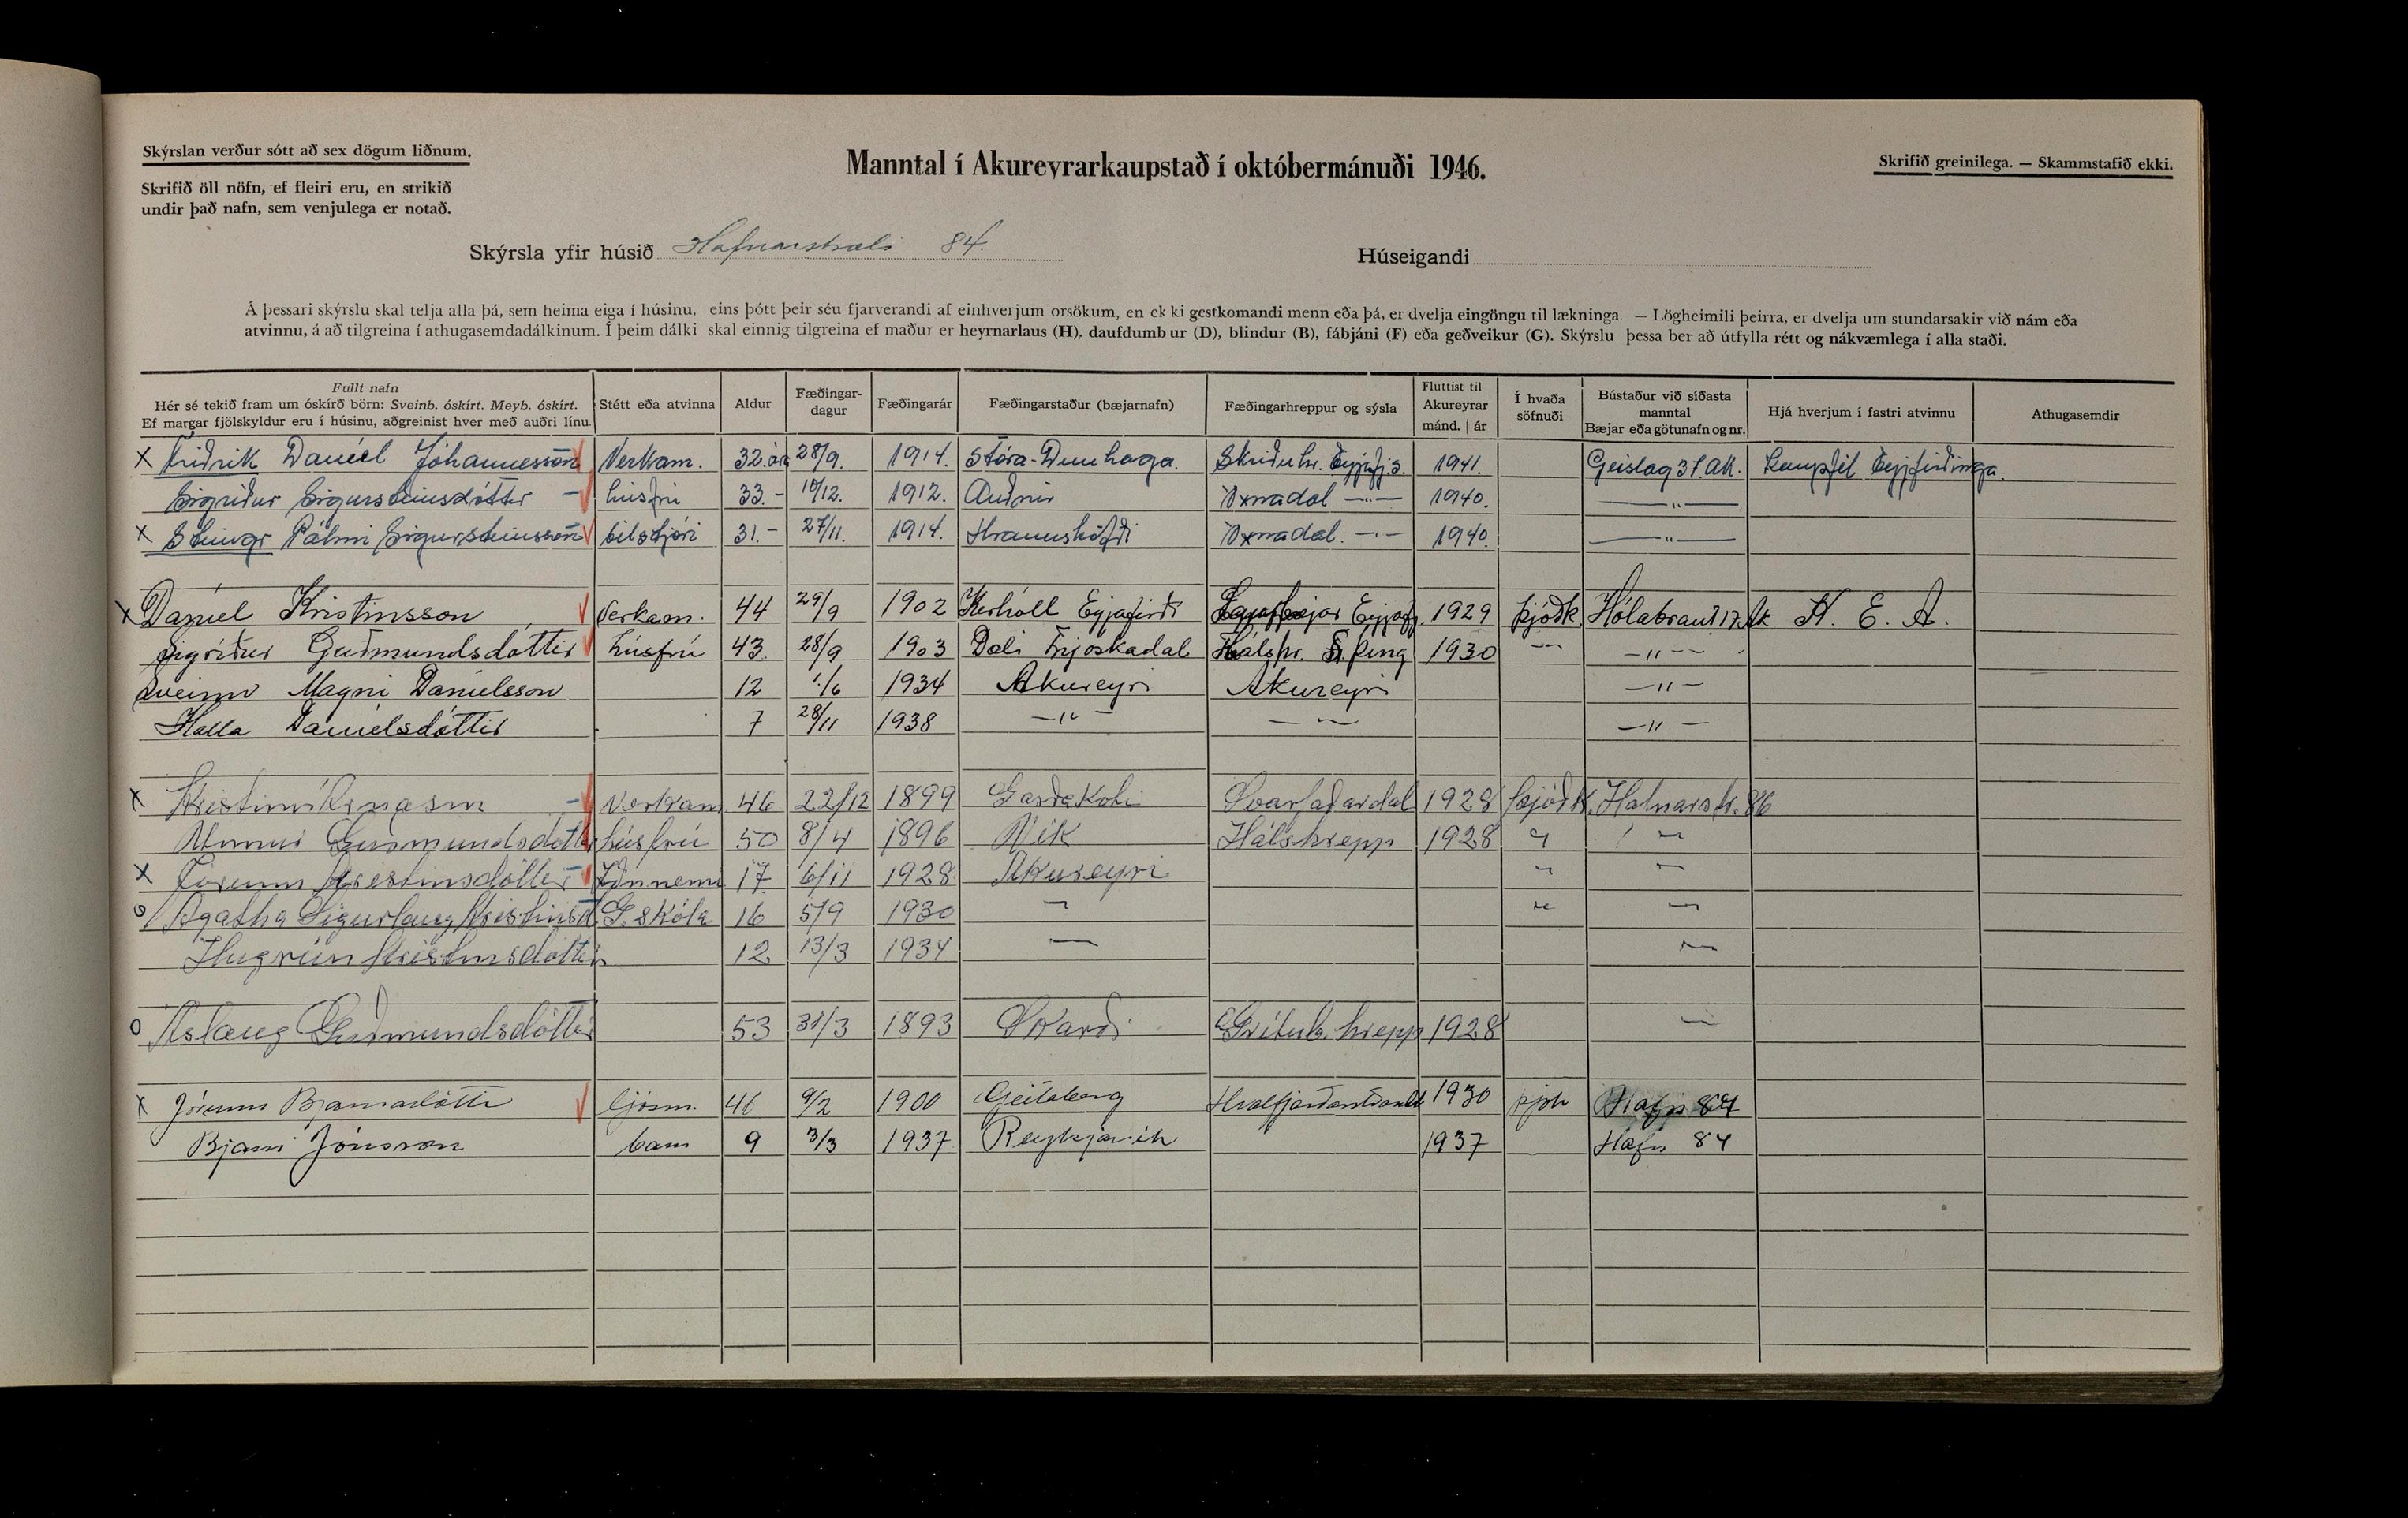 Skýrslan verður sótt að sex dögum liðnum.
Skrifið öll nöfn, ef fleiri eru, en strikið
undir það nafn, sem venjulega er notað.
Manntal í Akureyrarkaupstað í októbermánuði 1946.
Skrifið greinilega. — Skammstafið ekki.
Skýrsla yfir húsið Hafnarstræti 84.
Húseigandi
Á þessari skýrslu skal telja alla þá, sem heima eiga í húsinu, eins þótt þeir séu fjarverandi af einhverjum orsökum, en ekki gestkomandi menn eða þá, er dvelja eingöngu til lækninga. — Lögheimili þeirra, er dvelja um stundarsakir við nám eða
atvinnu, á að tilgreina í athugasemdadálkinum. Í þeim dálki skal einnig tilgreina ef maður er heyrnarlaus (H), daufdumbur (D), blindur (B), fábjáni (F) eða geðveikur (G). Skýrslu þessa ber að útfylla rétt og nákvæmlega í alla staði.
Fullt nafn
Hér sé tekið fram um óskírð börn: Sveinb. óskírt. Meyb. óskírt.
Ef margar fjölskyldur eru í húsinu, aðgreinist hver með auðri línu.
Stétt eða atvinna
Aldur
Fæðingar-
dagur
Fæðingarár
Fæðingarstaður (bæjarnafn)
Fæðingarhreppur og sýsla
Fluttist til
Akureyrar
mánd. | ár
Í hvaða
söfnuði
Bústaður við síðasta
manntal
Bæjar eða götunafn og nr.
Hjá hverjum í fastri atvinnu
Athugasemdir
x Friðrik Daníel Jóhannesson Verkam. 32 ára 28/9. 1914. Stóra-Dunhaga. Skriðuhr. Eyjafj.s. 1941. Geislag 37. Ak. Kaupfél Eyjfirðinga.
Sigríður Sigursteinsdóttir húsfrú 33.- 10/12. 1912. Auðnir Öxnadal —"— 1940. —"—
x Steingr Pálmi Sigursteinsson bílstjóri 31.- 27/11. 1914. Hraunshöfði Öxnadal. —"— 1940. —"—
x Daníel Kristinsson Verkam. 44 29/9 1902 Kerhóll Eyjafirði Eyjafj. 1929 þjóðk. Hólabraut 17. Ak K. E. A.
Sigríður Guðmundsdóttir húsfrú 43 28/9 1903 Dæli Fnjóskadal Hálshr. S. Þing 1930 —"— —"—
Sveinn Magni Daníelsson 12 1/6 1934 Akureyri Akureyri —"—
Halla Daníelsdóttir 7 28/11 1938 —"— —"— —"—
x Kristinn Verkam 46 22/12 1899 Garðakoti Svarfaðardal 1928 þjóðk. Hafnarstr. 86
Unnur Guðmundsdóttir húsfrú 50 8/4 1896 Vík Hálshrepp 1928 " "
x Jórunn Kristinsdóttir Iðnnemi 17 6/11 1928 Akureyri " "
o Agatha Sigurlaug Kristinsd. G. skóla 16 5/9 1930 " " "
Hugrún Kristinsdóttir 12 13/3 1934 " "
o Áslaug Guðmundsdóttir 53 31/3 1893 Skarði Grítub. hrepp 1928 "
x Jórunn Bjarnadóttir ljósm. 46 9/2 1900 Geitaberg Hvalfjarðarstrand 1930 þjóðk Hafn 84
Bjarni Jónsson barn 9 3/3 1937 Reykjavík 1937 Hafn 84